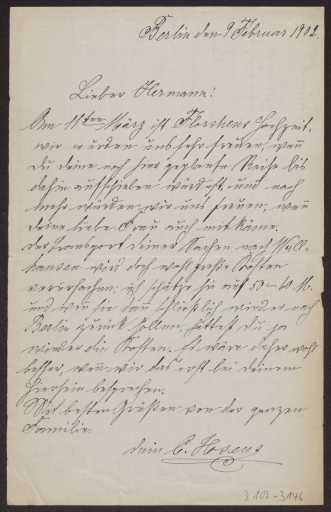 Berlin den 9 Februar 1902.
Lieber Hermann!
Am 11ten März ist Florchens Hochzeit,
wir würden uns sehr freuen, wenn
Du deine nach hier geplante Reise bis
dahin aufschieben würdest und noch
mehr würden wir uns freuen, wenn
deine liebe Frau auch mit käme.
Der Transport deiner Sachen nach
hausen wird doch wohl große Kosten
verursachen; ich schätze sie auf 50-60 M.
und wenn sie dann schließlich wieder nach
Berlin zurück sollen, hättest du ja
wieder die Kosten. Es wäre daher wohl
besser, wenn wir das erst bei deinem
Hiersein besprechen.
Mit besten Grüßen von der ganzen
Familie.
dein C.
3103-3146